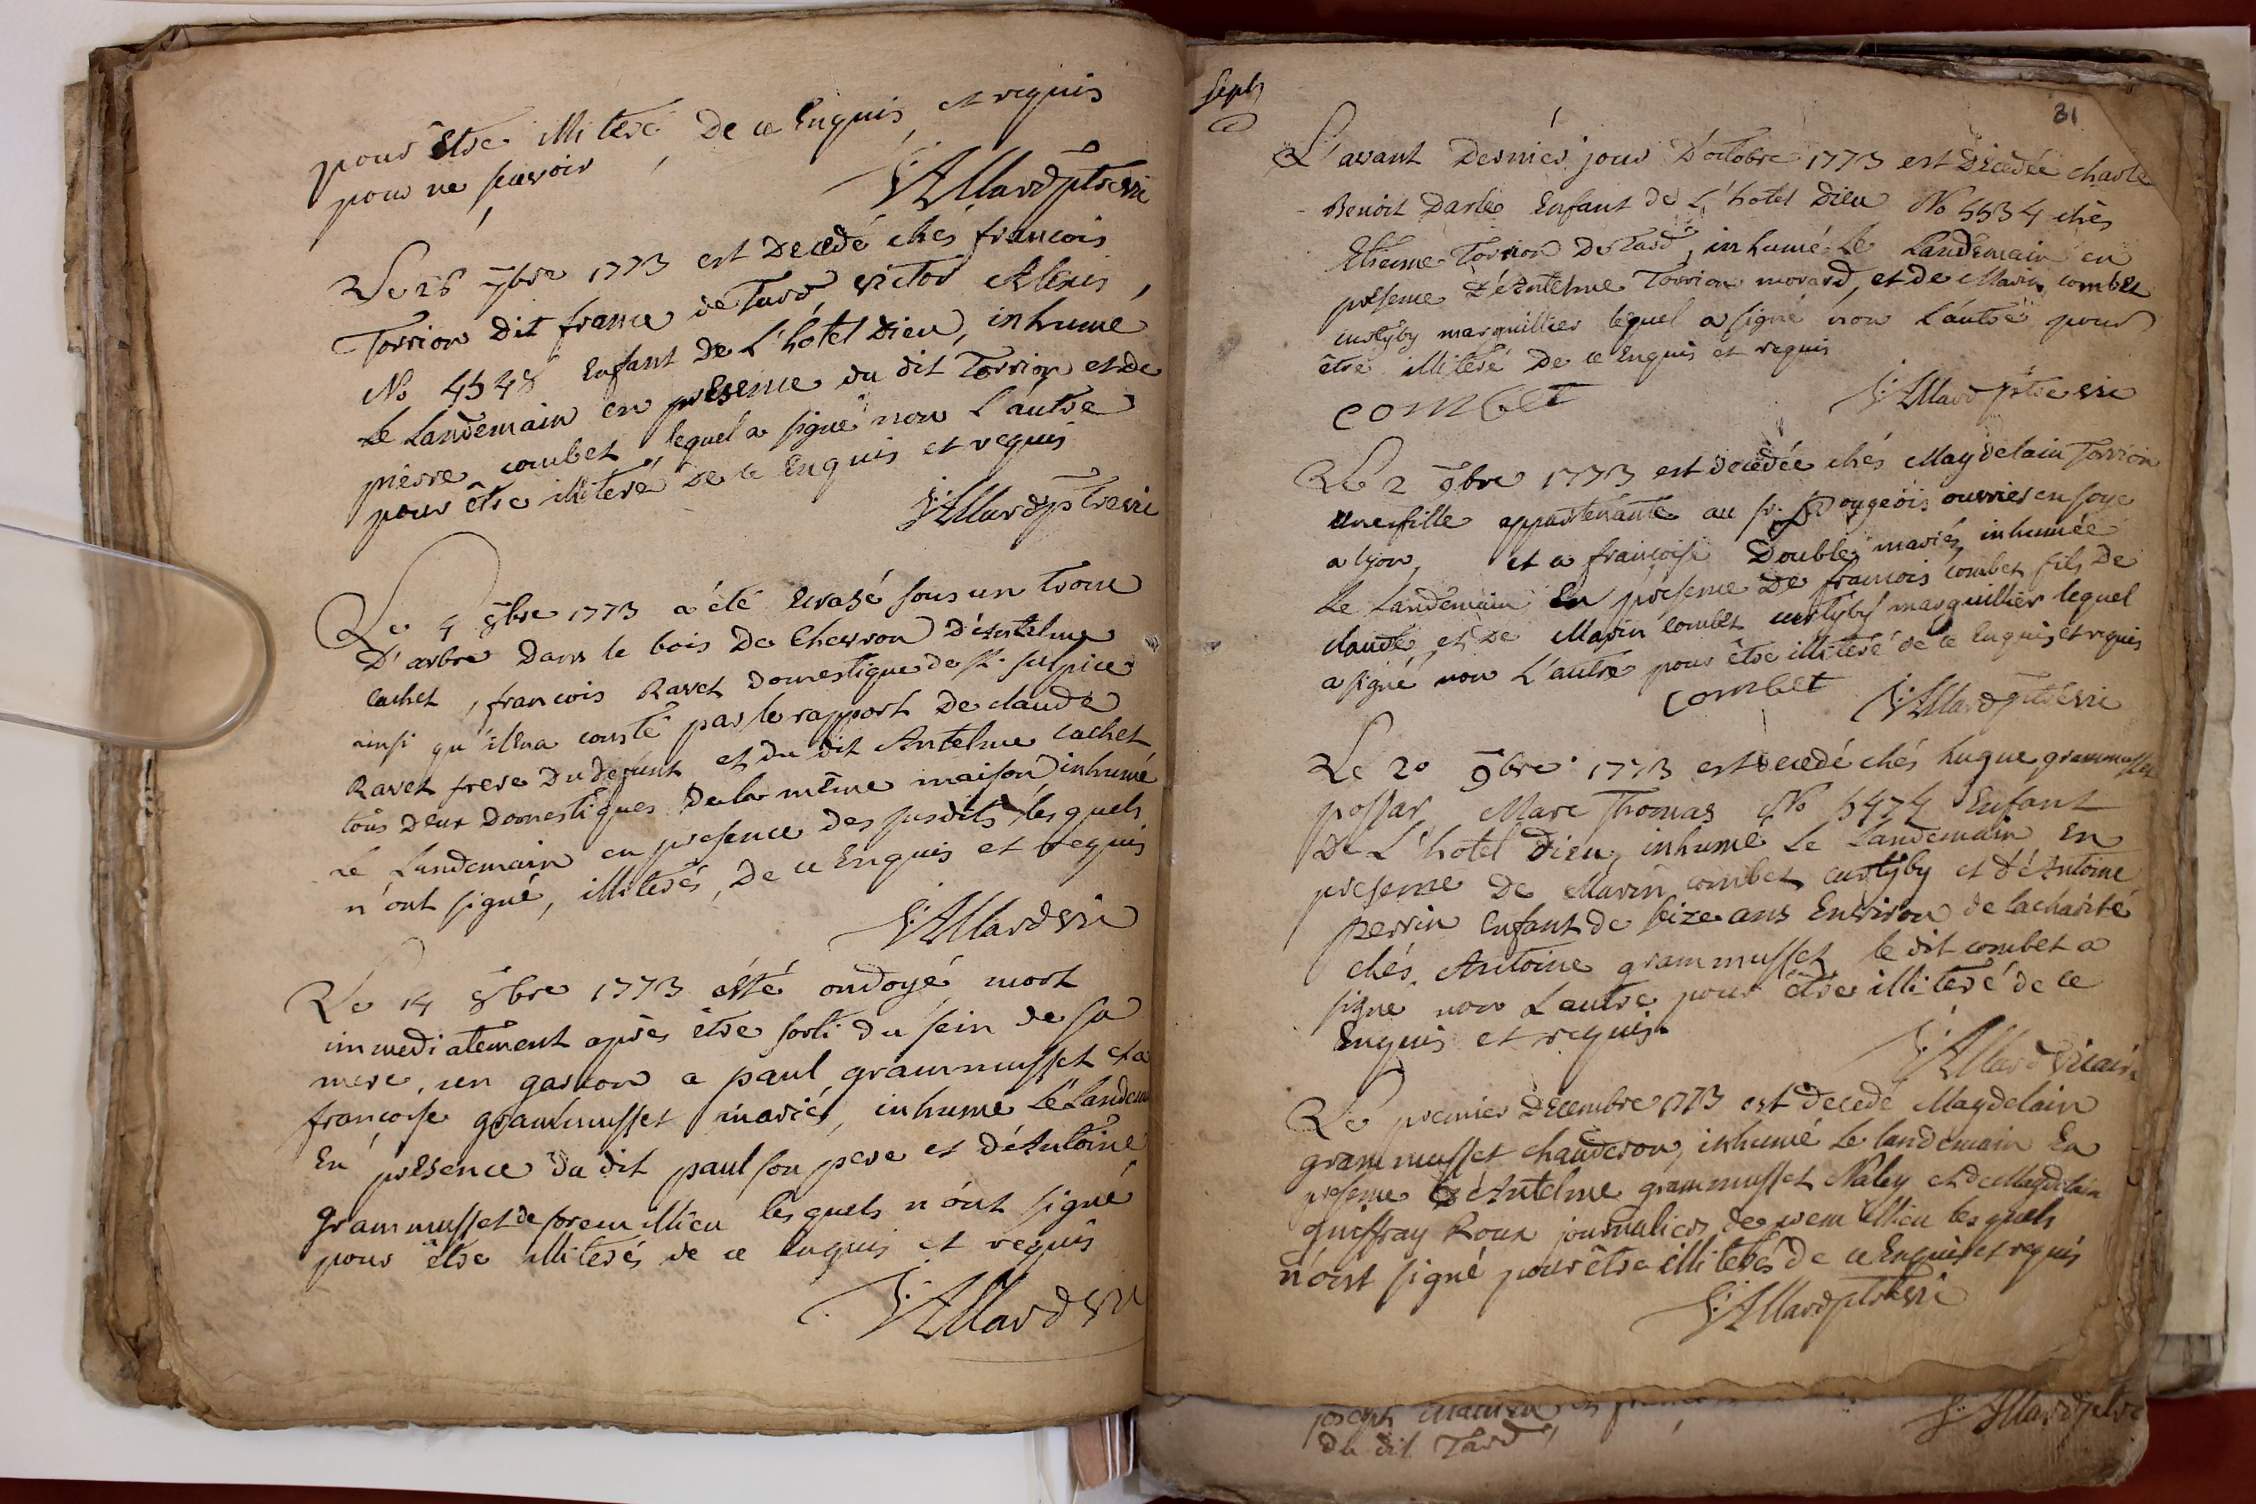 pour Etre illiteré De ce Enquis et requis
pour ne scavoir
J: Allard ptre vic
Le 28 7bre 1773 est Decedé chés francois
Torrion Dit france de Tard, victor Alexis,
No 4548 Enfant De L'hotel Dieu, inhumé
Le Landemain en presence du dit Torrion et de
pierre combet, lequel a signé non L'autre
pour être illiteré De ce Enquis et requis
J: Allard ptre vic
Le 4 8bre 1773 a été Ecrasé sous un tronc
D'arbre Dans le bois De Chevron D'Antelme
cachet, francois Ravet Domestique de St. sulpice
ainsi qu'il en a consté par le rapport De claude
Ravet frere Du defunt et du dit Antelme cachet
tous Deux Domestiques De la même maison, inhumé
Le Landemain en presence des susdits lesquels
n'ont signé, illiterés, De ce Enquis et requis
J: Allard vic
Le 14 8bre 1773 a été ondoyé mort
immediatement après être sorti du sein de sa
mere, un garcon a paul grammusset et a
francoise grammusset mariés, inhumé Le Landem
En presence du dit paul son pere et D'Antoine
grammusset de forem illieu lesquels n'ont signé
pour être illiterés de ce enquis et requis
J: Allard vic
Sept
31
L'avant Dernier jour D'octobre 1773 est Decedée charle
Benoit Darles Enfant de L'hotel Dieu No 5534 chés
Etienne Torrion De Tard, inhumé Le Landemain en
presence D'Antelme Torrion morard, et de Marin combet
curtyby marguillier lequel a signé non L'autre pour
être illiteré De ce Enquis et requis
combet
J: Allard ptre vic
Le 2 9bre 1773 est decedée chés Magdelain Torrion
une fille appartenante au sr. Bougeois ouvrier en soye
a lyon, et a francoise Double, mariés, inhumée
Le Landemain En presence De francois combet fils De
claude et De Marin combet curtyby marguillier lequel
a signé non L'autre pour être illiteré de ce Enquis et requis
combet
J: Allard ptre vic
Le 20 9bre 1773 est decedé chés hugue grammusset
possar Marc Thomas No 5474 Enfant
De L'hotel Dieu, inhumé Le Landemain En
presence De Marin combet curtyby et D'Antoine
perrin Enfant de seize ans Environ de la charité
chés Antoine grammusset le dit combet a
signé non L'autre pour être illiteré de ce
Enquis et requis.
J: Allard vicair
Le premier Decembre 1773 est decedé Magdelain
grammusset chauderon, inhumé Le landemain En
presence D'Antelme grammusset Naley et de Magdelain
guiffray Roux journaliers de prem illieu lesquels
n'ont signé pour être illiterés de ce Enquis et requis
J: Allard ptre vic
joseph
du dit Tard,
J: Allard ptre